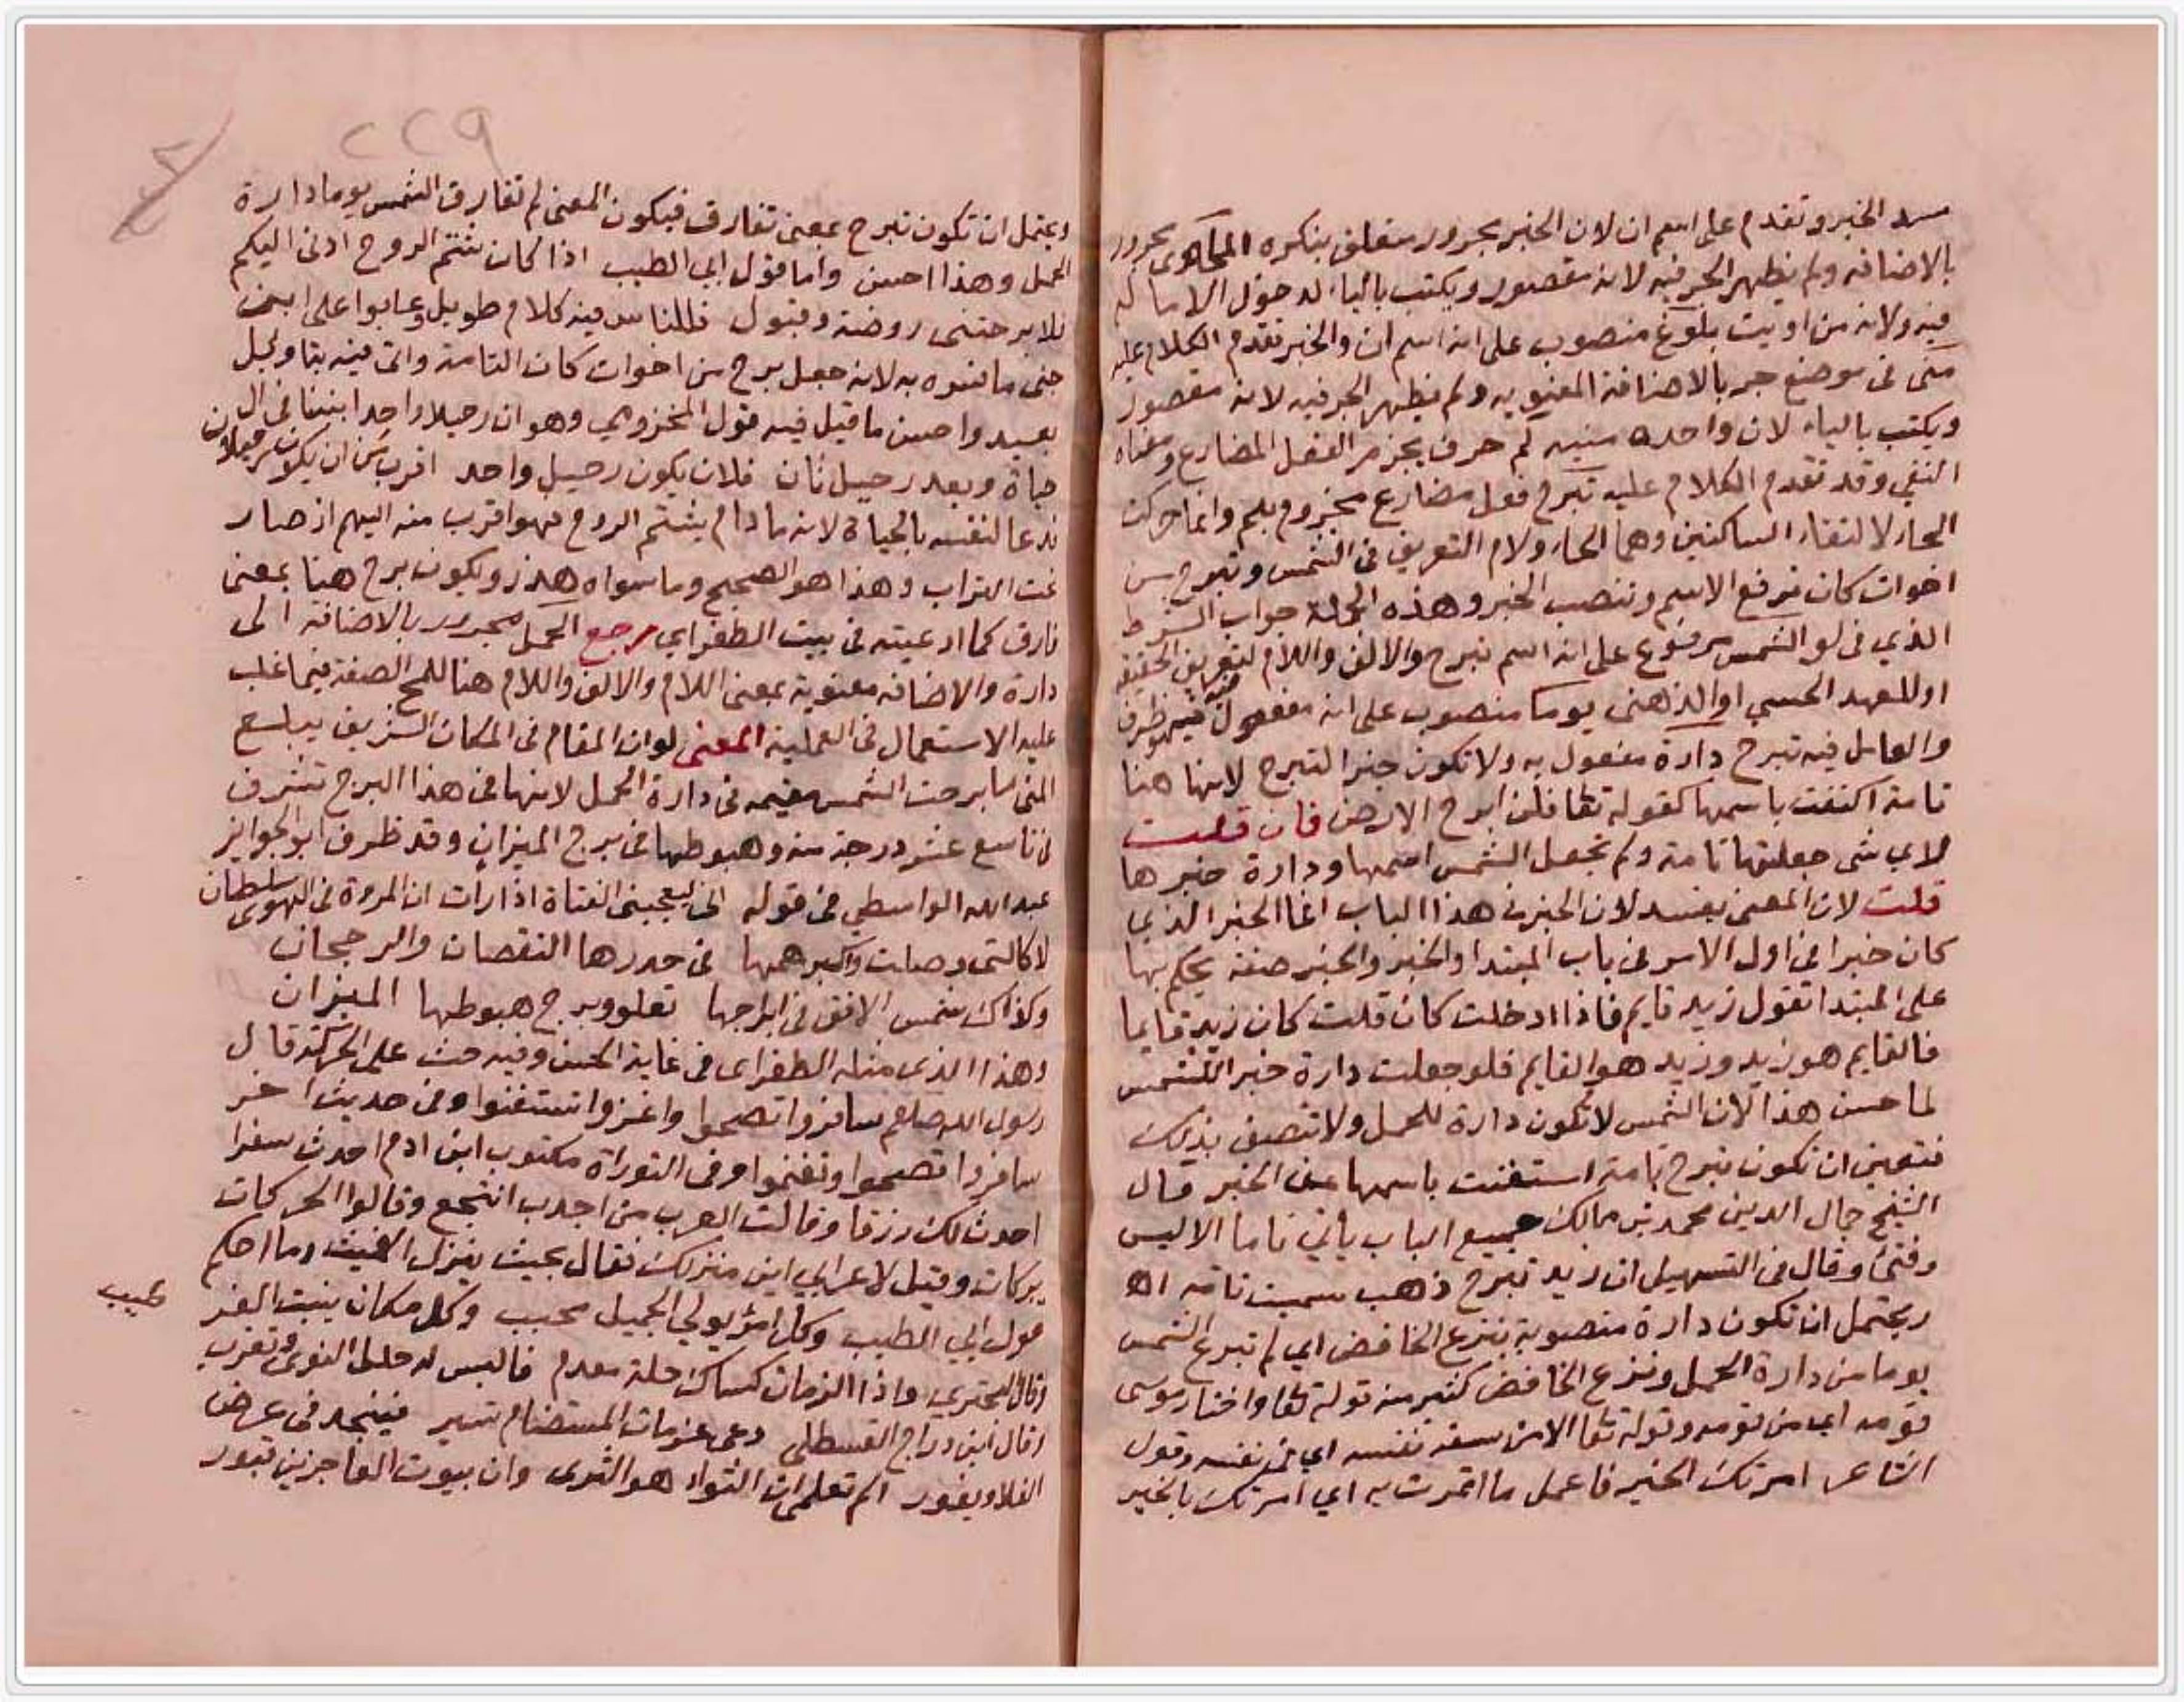 مسد الخبر وتقدم على اسم ان لان الخبر مجرور متعلق بنكره المأوى مجرور
بالاضافه ولم يظهر الجر فيه لانه مقصور ويكتب بالياء لدخول الاماله
فيه ولانه من اويت بلوغ منصوب على انه اسم ان والخبر تقدم الكلام عليه
منى فى موضع جر بالاضافة المعنويه ولم يظهر الجر فيه لانه مقصور
ويكتب بالياء لان واحده منيه لم حرف يجزم الفعل المضارع ومعناه
النفي وقد تقدم الكلام عليه تبرح فعل مضارع مجزوم بلم وانما حركت
الحاء لالتقاء الساكنين وهما الحاء ولام التعريف فى الشمس وتبرح من
اخوات كان ترفع الاسم وتنصب الخبر وهذه الجملة جواب الشرط
الذي فى لو الشمس مرفوع على انه اسم تبرح والالف واللام لتعريف الحقيقه
او للعهد الحسي او الذهنى يوما منصوب على انه مفعول فيه ظرف
والعامل فيه تبرح دارة مفعول به ولا تكون خبرا لتبرح لانها هنا
تامة اكتفت باسمها كقوله تعا فلن ابرح الارض فان قلت
لاي شى جعلتها تامة ولم تجعل الشمس اسمها ودارة خبرها
قلت لان المعنى يفسد لان الخبر فى هذا الباب انما الخبر الذي
كان خبرا فى اول الامر فى باب المبتدا والخبر والخبر صفة يحكم بها
على المبتدا تقول زيد قايم فاذا ادخلت كان قلت كان زيد قايما
فالقايم هو زيد وزيد هو القايم فلو جعلت دارة خبر الشمس
لما حسن هذا لان الشمس لا تكون دارة للحمل ولا تتصف بذلك
فتعين ان تكون تبرح تامة استغنت باسمها عن الخبر قال
الشيخ جمال الدين محمد بن مالك جميع الباب يأتي تاما الا ليس
وفتئ وقال فى التسهيل ان زيد تبرح ذهب سميت تامه اه
ويحتمل ان تكون دارة منصوبة بنزع الخافض اي لم تبرح الشمس
يوما من دارة الحمل ونزع الخافض كثير منه قوله تعا واختار موسى
قومه اي من قومه وقوله تعا الا من سفه نفسه اي فى نفسه وقول
الشاعر امرتك الخير فاعمل ما ائتمرت به اي امرتك بالخير
٢٢٩
ويحتمل ان تكون تبرح بمعنى تفارق فيكون المعنى لم تفارق الشمس يوما دارة
الحمل وهذا احسن واما قول ابي الطيب اذا كان شم الروح ادنى اليكم
فلا برحتنى روضة وقبول فللناس فيه كلام طويل وعابوا على ابن
جنى ما فسره به لانه جعل برح من اخوات كان التامة واتى فيه بتاويل
بعيد واحسن ما قيل فيه قول المخزومي وهو ان رحيلا واحدا بيننا فى ال
حياة وبعد رحيل ثان فلان يكون رحيل واحد اقرب من ان يكون رحيلان
فدعا لنفسه بالحياة لانه ما دام يشتم الروح فهو اقرب منه اليهم اذ صار
تحت التراب وهذا هو الصحيح وما سواه هذر ويكون برح هنا بمعنى
فارق كما ادعيته فى بيت الطغراي رجع الحمل مجرور بالاضافة الى
دارة والاضافه معنوية بمعنى اللام والالف واللام هنا للمح الصفة فيما غلب
عليه الاستعمال فى العلمية المعنى لو ان المقام فى المكان الشريف يبلغ
المنى ما برحت الشمس مقيمه فى دارة الحمل لانها فى هذا البرج تشرف
فى تاسع عشر درجة منه وهبوطها فى برج الميزان وقد ظرف ابو الجوايز
عبد الله الواسطي فى قوله انى ليعجبنى الفتاة اذا رات ان المروة فى الهوى سلطان
لا كالتى وصلت واكبر همها فى خدرها النقصان والرجحان
وكذاك شمس الافق فى ابراجها تعلو وبرج هبوطها الميزان
وهذا الذى مثله الطغراى فى غاية الحسن وفيه حث على الحركة قال
رسول الله صلعم سافروا تصحوا واغزوا تستغنوا وفى حديث اخر
سافروا تصحوا وتغنموا وفى التوراة مكتوب ابن ادم احدث سفرا
احدث لك رزقا وقالت العرب من اجدب انتجع وقالوا الحركات
بركات وقيل لاعرابي اين منزلك فقال بحيث ينزل الغيث وما احكم
قول ابي الطيب وكل امرؤ يولي الجميل محبب وكل مكان ينبت العز
طيب
وقال البحتري واذا الزمان كساك حلة معدم فالبس له حلل النوى وتغرب
وقال ابن دراج القسطلى دعى عزمات المستضام تسير فينجد فى عرض
الفلا ويغور الم تعلمى ان الثواء هو الثوى وان بيوت العاجزين قبور